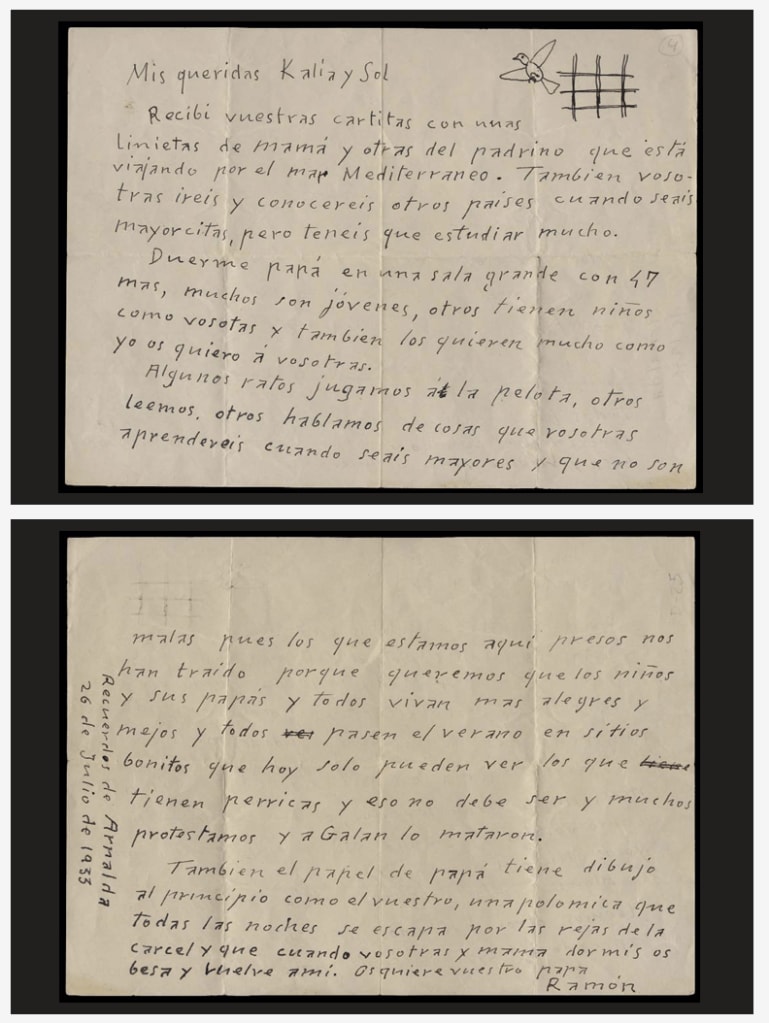 4
Mis queridas Kalia y Sol
Recibi vuestras cartitas con unas
linietas de mamá y otras del padrino que está
viajando por el mar Mediterraneo. Tambien voso-
tras ireis y conocereis otros países cuando seais
mayorcitas, pero teneis que estudiar mucho.
Duerme papá en una sala grande con 47
mas, muchos son jóvenes, otros tienen niños
como vosotas y tambien los quieren mucho como
yo os quiero á vosotras.
Algunos ratos jugamos á la pelota, otros
leemos, otros hablamos de cosas que vosotras
aprendereis cuando seais mayores y que no son
malas pues los que estamos aquí presos nos
han traido porque queremos que los niños
y sus papás y todos vivan mas alegres y
mejos y todos ver pasen el verano en sitios
bonitos que hoy solo pueden ver los que tiene
tienen perricas y eso no debe ser y muchos
protestamos y a Galan lo mataron.
Tambien el papel de papá tiene dibujo
al principio como el vuestro, una polomica que
todas las noches se escapa por las rejas de la
carcel y que cuando vosotras y mama dormis os
besa y vuelve ami. Os quiere vuestro papa
Ramón
Recuerdos de Arnalda
26 de Julio de 1933